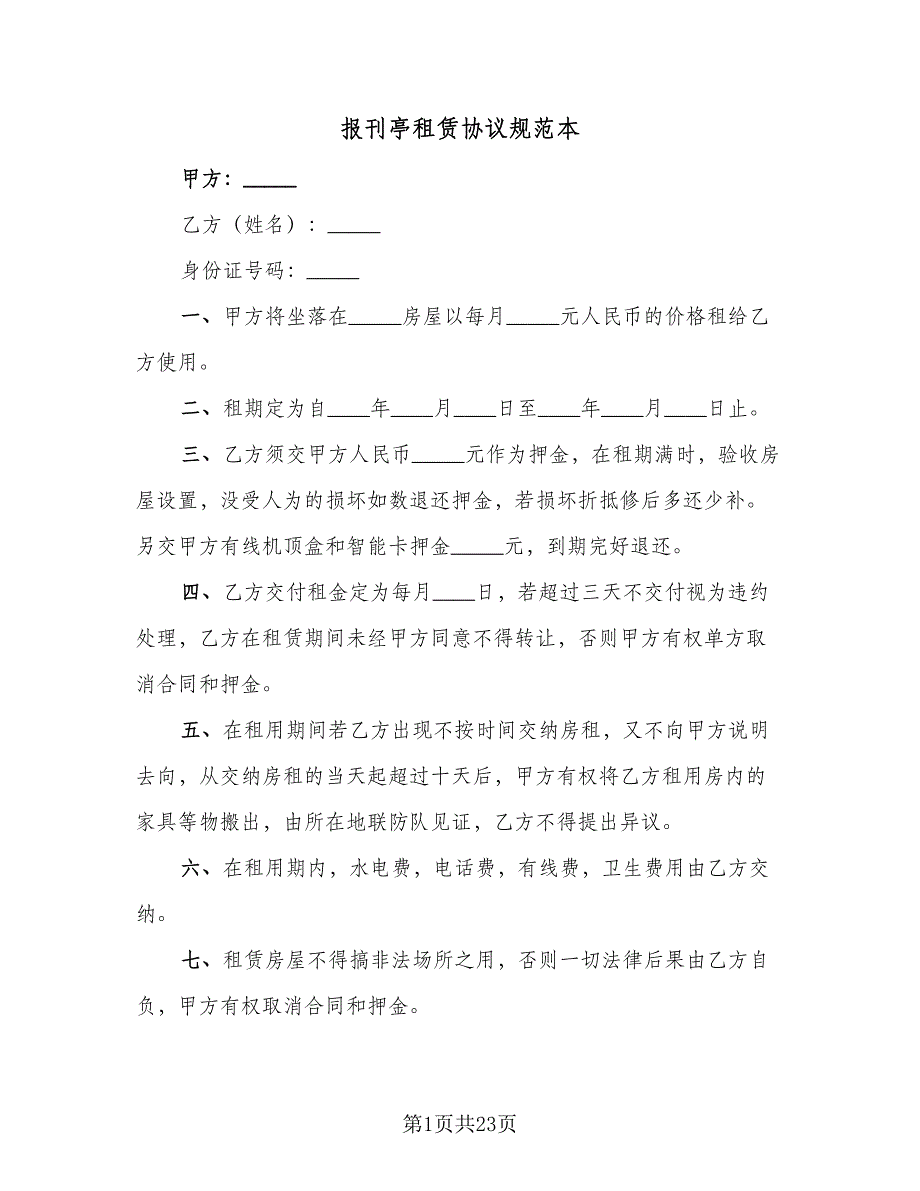 报刊亭租赁协议规范本
甲方：_____
乙方（姓名）：_____
身份证号码：_____
一、甲方将坐落在_____房屋以每月_____元人民币的价格租给乙
方使用。
二、租期定为自____年____月____日至____年____月____日止。
三、乙方须交甲方人民币_____元作为押金，在租期满时，验收房
屋设置，没受人为的损坏如数退还押金，若损坏折抵修后多还少补。
另交甲方有线机顶盒和智能卡押金_____元，到期完好退还。
四、乙方交付租金定为每月____日，若超过三天不交付视为违约
处理，乙方在租赁期间未经甲方同意不得转让，否则甲方有权单方取
消合同和押金。
五、在租用期间若乙方出现不按时间交纳房租，又不向甲方说明
去向，从交纳房租的当天起超过十天后，甲方有权将乙方租用房内的
家具等物搬出，由所在地联防队见证，乙方不得提出异议。
六、在租用期内，水电费，电话费，有线费，卫生费用由乙方交
纳。
七、租赁房屋不得搞非法场所之用，否则一切法律后果由乙方自
负，甲方有权取消合同和押金。
第1页共23页